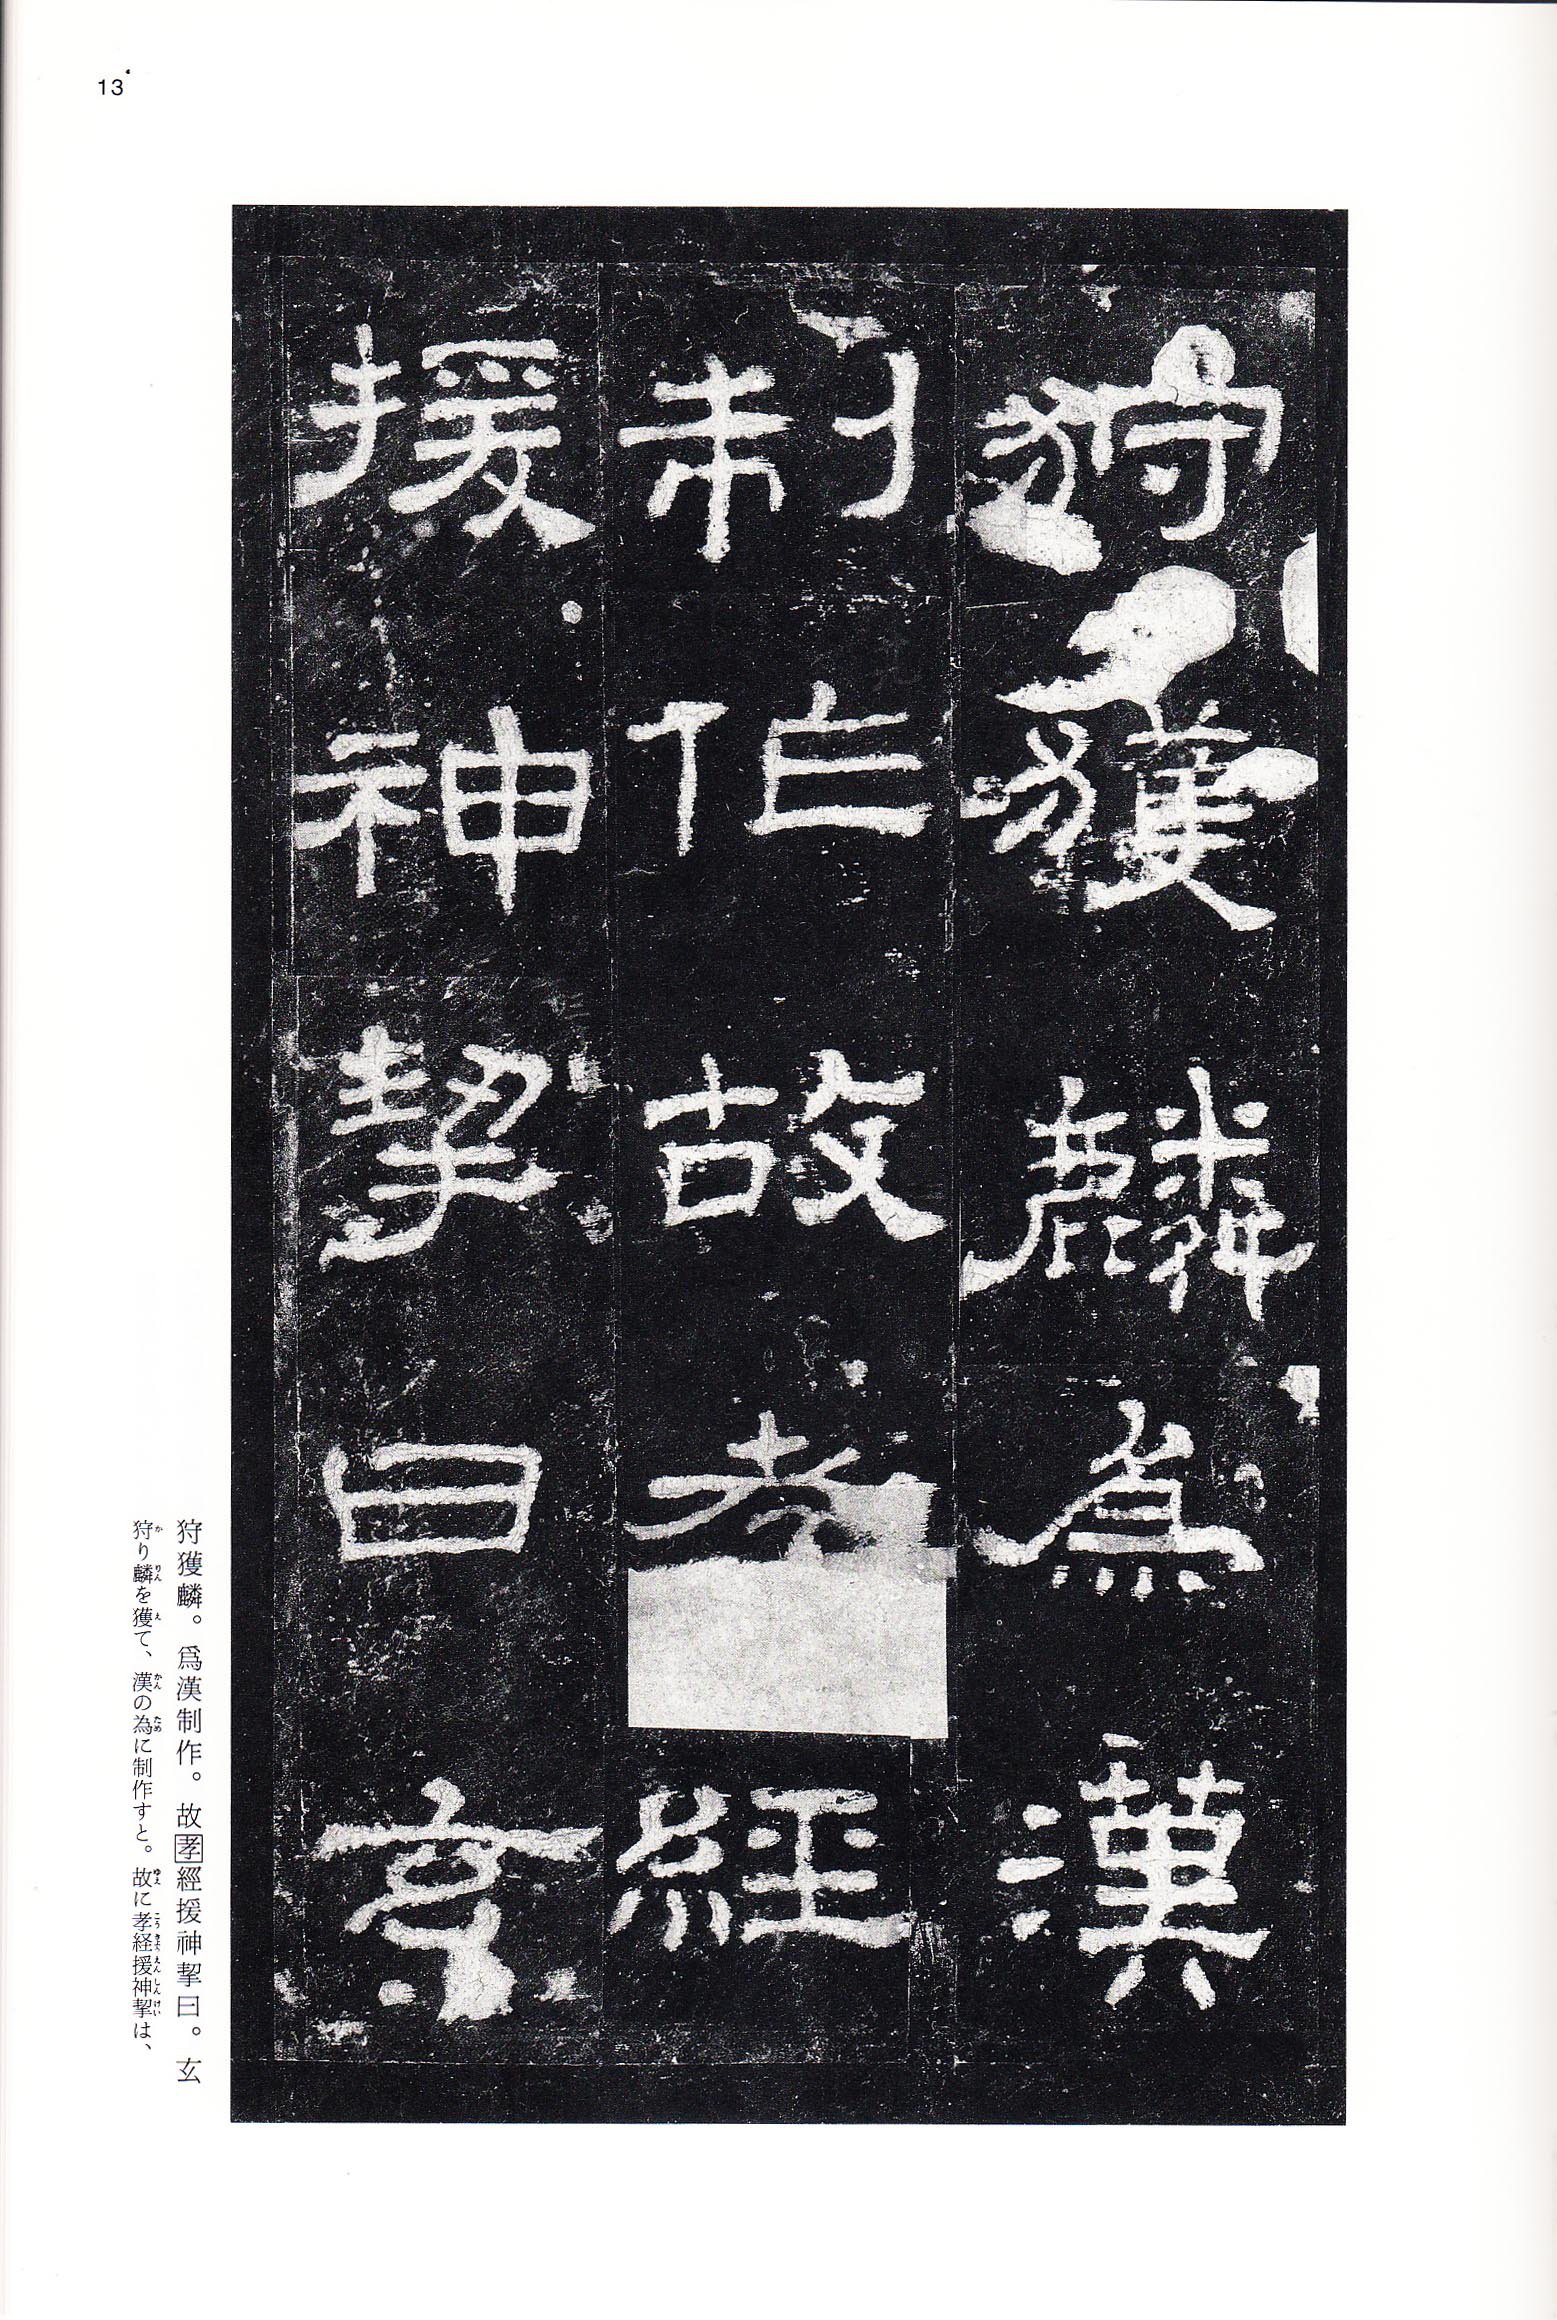 13
狩獲麟爲漢
制作故孝經
援神挈曰玄
狩獲麟。爲漢制作。故孝經援神挈曰。玄
狩り麟を獲て、漢の為に制作すと。故に孝経援神挈は、